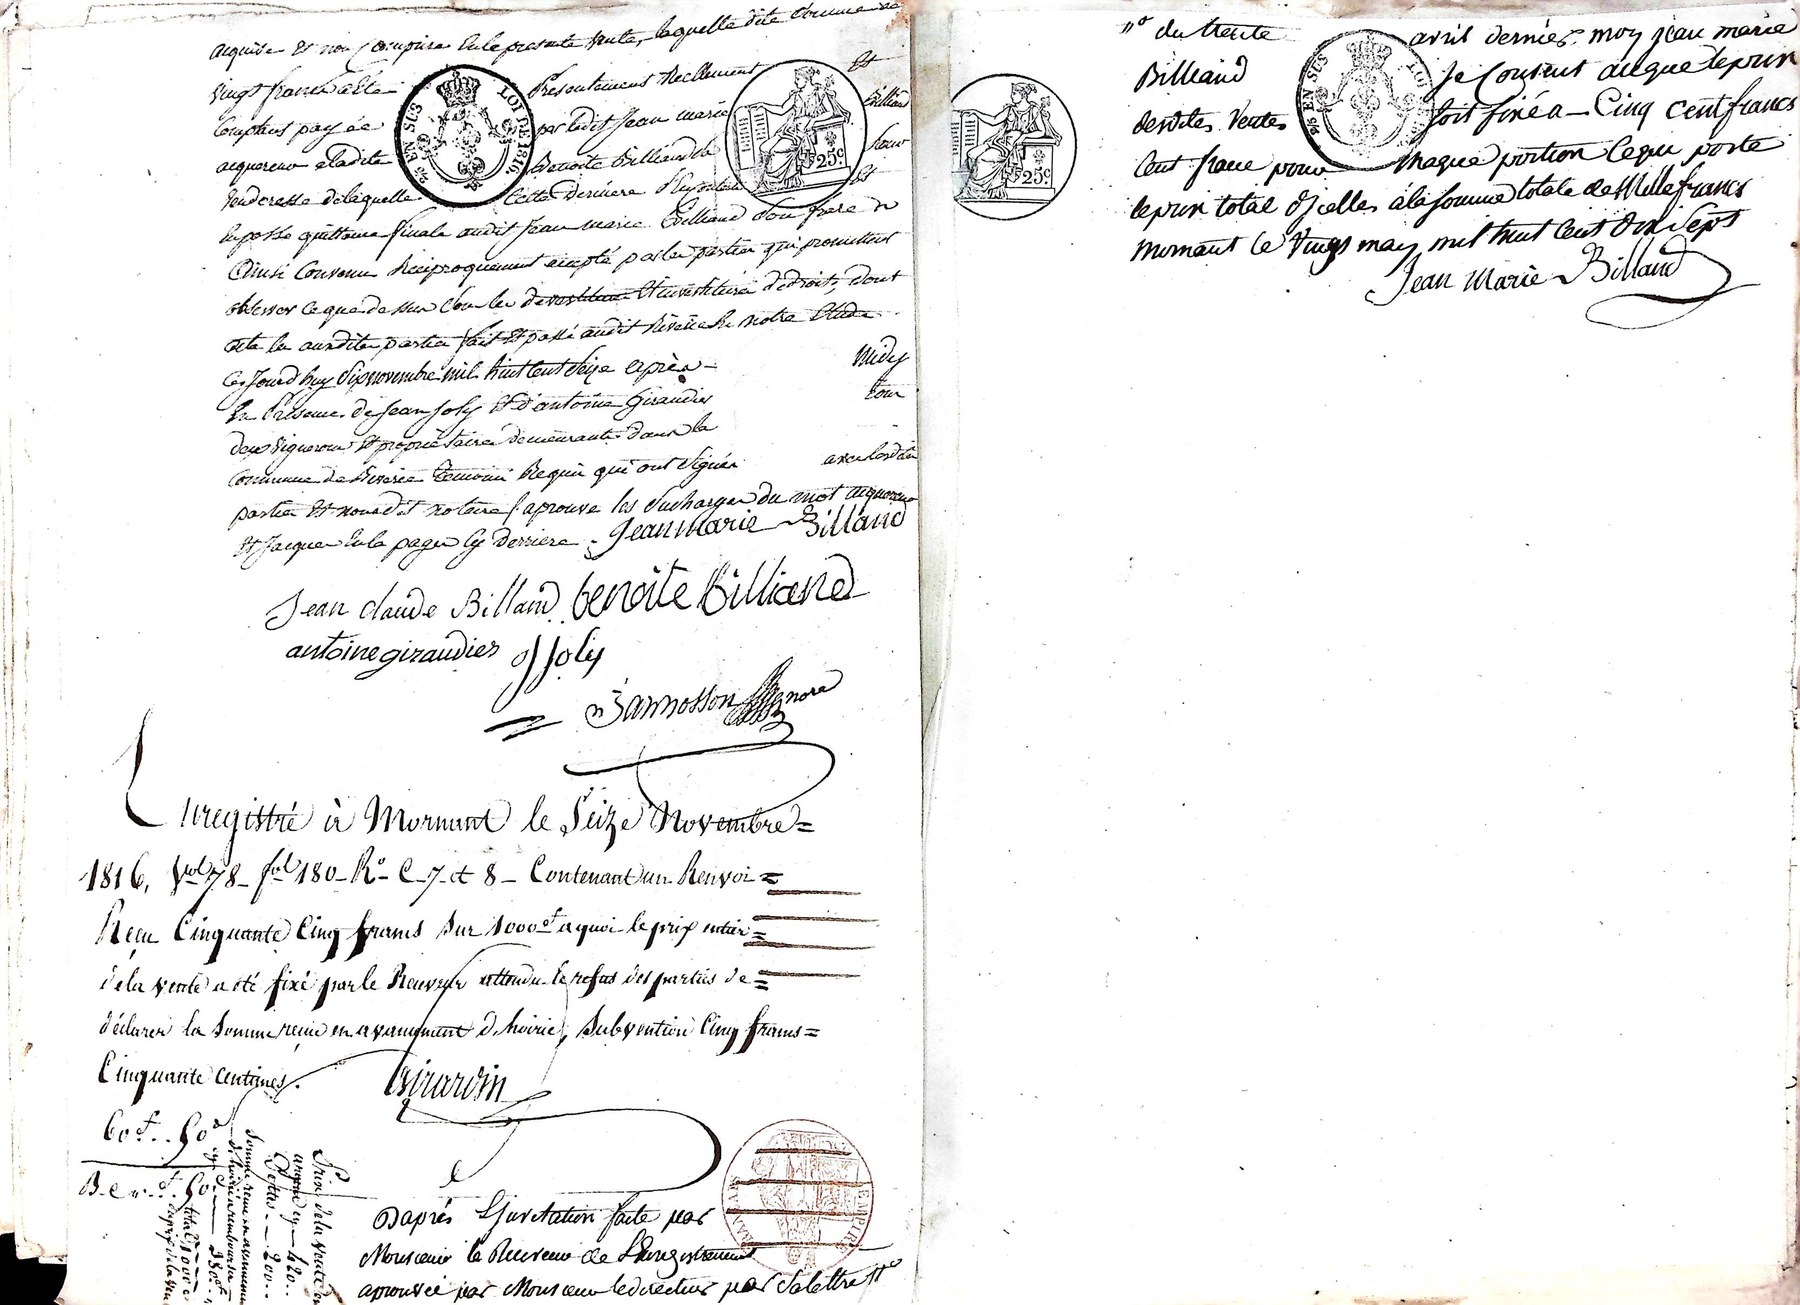 acquise et non comprise en la presente vente, laquelle dite somme de
vingt francs a été presentement reellement et
comptans payée par ledit Jean marie Billiand
acquereur a ladite Benoite Billiand sa sœur
venderesse de laquelle cette derniere et
en passe quittance finale audit Jean marie Billiand son frere
Ainsi convenu reciproquement accepté par les parties qui promettent
observer ce que dessus sous les devestiture et investiture de droit, dont
acte les audites parties fait et passé audit Riverie en notre Etude
Ce jourd'huy Six novembre mil huit cent Seize après midy
En presence de Jean Joly et d'antoine Giraudier tous
deux vignerons et proprietaires demeurants dans la
commune de Riverie temoins Requis qui ont signés avec lesdites
parties et nous dit notaire j'aprouve les surcharges du mot acquereur
et Jacques en la page cy derriere. Jean Marie Billand
Jean Claude Billand benoite Billiand
antoine giraudier J Joly
Jannosson nore
Enregistré à Mornant le Seize Novembre =
1816, Vol 78 fol 180 Ro C 7 et 8 - Contenant un Renvoi =
Reçu Cinquante Cinq francs sur 1000f a quoi le prix entier =
dela vente a été fixé par le Receveur attendu le refus des parties de =
déclarer la somme reçue en avancement d'hoirie, Subvention Cinq francs =
Cinquante centimes. Girardin
60f.. 50c
Prix de la vente
cy - 420..
Pottes - - 200..
Somme reçue en avancement
d'hoirie
380
total 1000
du prix de la vente
D'après l'Invitation faite par
Monsieur le Receveur de l'Enregistrement
aprouvée par Monsieur le directeur par sa lettre no
EN SUS LOI DE 1816
25c
no du trente avril dernier. moy jean marie
Billiand Je Consent aceque le prix
desdites ventes soit fixé a - Cinq cent francs
Cent franc pour chaque portion ce qui porte
le prix total d'icelles à la somme totale de Mille francs
mornant ce vingt may mil huit cent dix sept
Jean Marie Billand
25c
EN SUS LOI